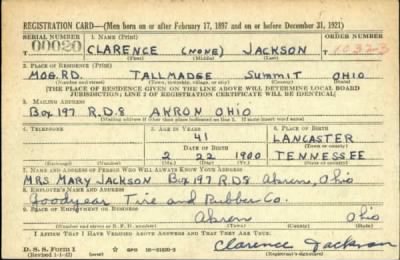 REGISTRATION CARD—(Men born on or after February 17, 1897 and on or before December 31, 1921)
SERIAL NUMBER 1. NAME (Print) ORDER NUMBER
00020 CLARENCE (NONE) JACKSON 10323
(First) (Middle) (Last)
2. PLACE OF RESIDENCE (Print)
MOG. RD. TALLMADGE SUMMIT OHIO
(Number and street) (Town, township, village, or city) (County) (State)
[THE PLACE OF RESIDENCE GIVEN ON THE LINE ABOVE WILL DETERMINE LOCAL BOARD
JURISDICTION; LINE 2 OF REGISTRATION CERTIFICATE WILL BE IDENTICAL]
3. MAILING ADDRESS
Box 197 R.D.8 AKRON OHIO
[Mailing address if other than place indicated on line 2. If same insert word same]
4. TELEPHONE 5. AGE IN YEARS 6. PLACE OF BIRTH
41 LANCASTER
DATE OF BIRTH (Town or county)
2 22 1900 TENNESSEE
(Exchange) (Number) (Mo.) (Day) (Yr.) (State or country)
7. NAME AND ADDRESS OF PERSON WHO WILL ALWAYS KNOW YOUR ADDRESS
MRS MARY JACKSON Box 197 R.D.8 Akron, Ohio
8. EMPLOYER'S NAME AND ADDRESS
Goodyear Tire and Rubber Co.
9. PLACE OF EMPLOYMENT OR BUSINESS
Akron Ohio
(Number and street or R. F. D. number) (Town) (County) (State)
I AFFIRM THAT I HAVE VERIFIED ABOVE ANSWERS AND THAT THEY ARE TRUE.
D. S. S. Form 1
(Revised 1-1-42) GPO 16—21630-2 Clarence Jackson
(Registrant's signature)